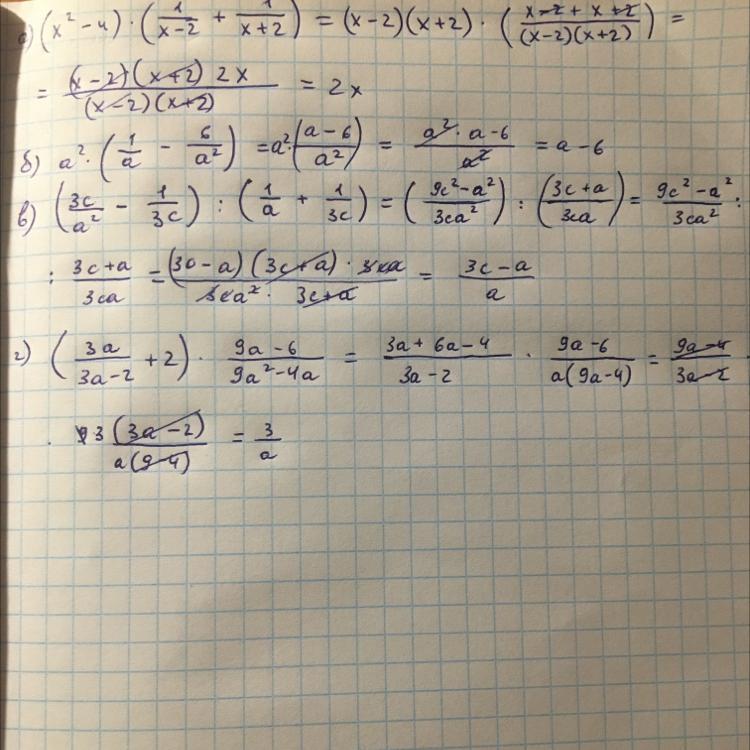 а) (x² - 4) · (1/(x-2) + 1/(x+2)) = (x-2)(x+2) · ((x-2+x+2)/((x-2)(x+2))) =
= ((x-2)(x+2) 2x)/((x-2)(x+2)) = 2x
б) a² · (1/a - 6/a²) = a² · ((a-6)/a²) = (a² · a-6)/a² = a - 6
в) (3c/a² - 1/3c) : (1/a + 1/3c) = ((9c²-a²)/3ca²) : ((3c+a)/3ca) = (9c²-a²)/3ca² :
: (3c+a)/3ca = ((3c-a)(3c+a) · 3ca)/(3ca² · 3c+a) = (3c-a)/a
г) (3a/(3a-2) + 2) · (9a-6)/(9a²-4a) = (3a+6a-4)/(3a-2) · (9a-6)/(a(9a-4)) = (9a-4)/(3a-2) ·
· 3(3a-2)/(a(9-4)) = 3/a